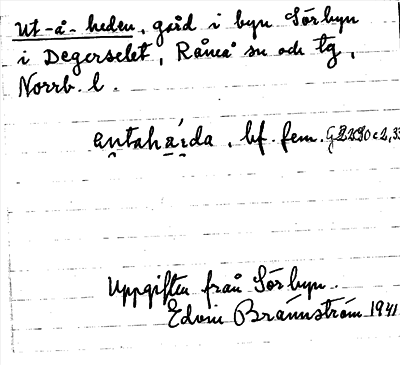 Ut-å-heden, gård i byn Sörbyn
i Degerselet, Råneå sn och tg,
Norrb. l.
antahäida, bf. fem.
Uppgiften från Sörbyn.
Edvin Brännström 1941